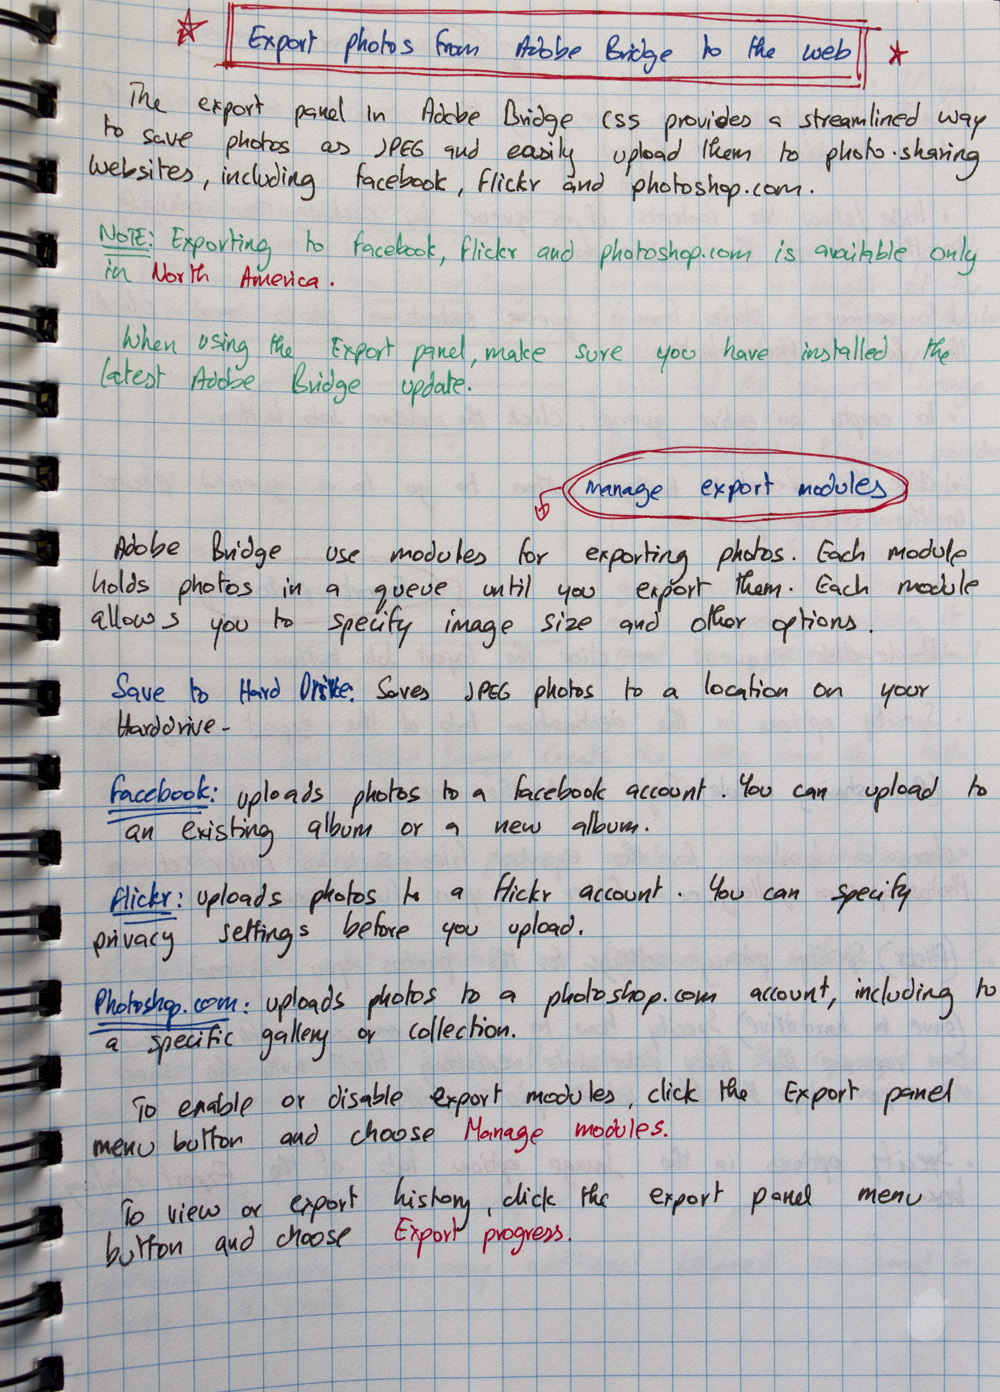 Export photos from Adobe Bridge to the web
The export panel in Adobe Bridge CS5 provides a streamlined way
to save photos as JPEG and easily upload them to photo.sharing
websites, including facebook, flickr and photoshop.com.
NOTE: Exporting to facebook, flickr and photoshop.com is available only
in North America.
When using the Export panel, make sure you have installed the
latest Adobe Bridge update.
manage export modules
Adobe Bridge use modules for exporting photos. Each module
holds photos in a queue until you export them. Each module
allows you to specify image size and other options.
Save to Hard Drive: Saves JPEG photos to a location on your
Harddrive-
facebook: uploads photos to a facebook account. You can upload to
an existing album or a new album.
flickr: uploads photos to a flickr account. You can specify
privacy settings before you upload.
Photoshop.com: uploads photos to a photoshop.com account, including to
a specific gallery or collection.
To enable or disable export modules, click the Export panel
menu button and choose Manage modules.
To view or export history, click the export panel menu
button and choose Export progress.